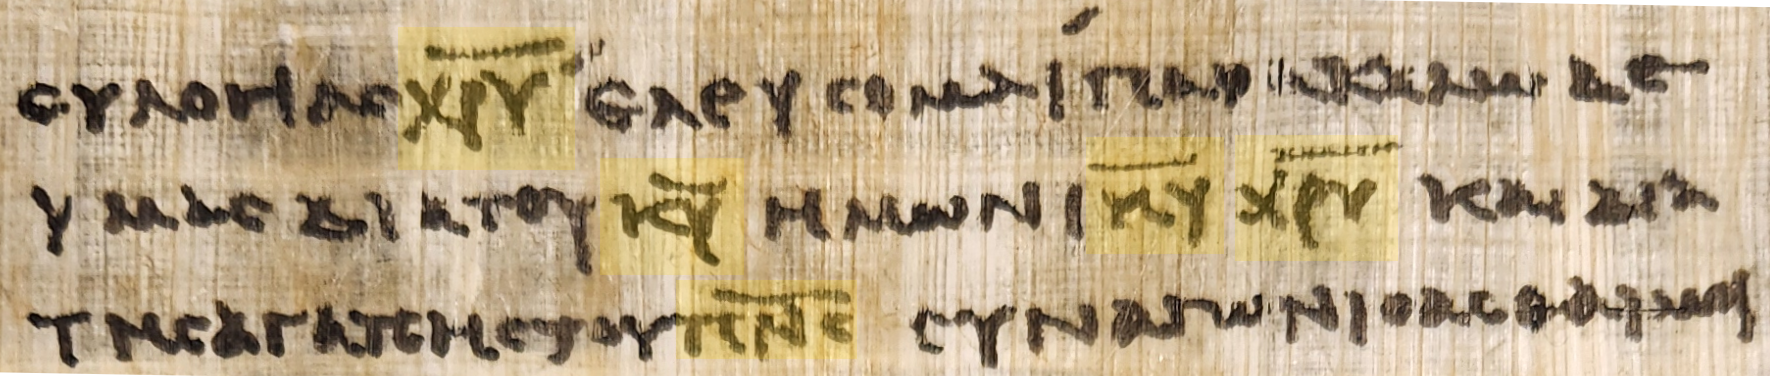 ευλογιαϲ χ̅ρ̅υ̅ ελευϲομαι παρακαλω δε
υμαϲ δια του κ̅υ̅ ημων ι̅η̅υ̅ χ̅ρ̅υ̅ και δια
τηϲ αγαπηϲ του π̅ν̅ϲ̅ ϲυναγωνιϲαϲθαι μοι